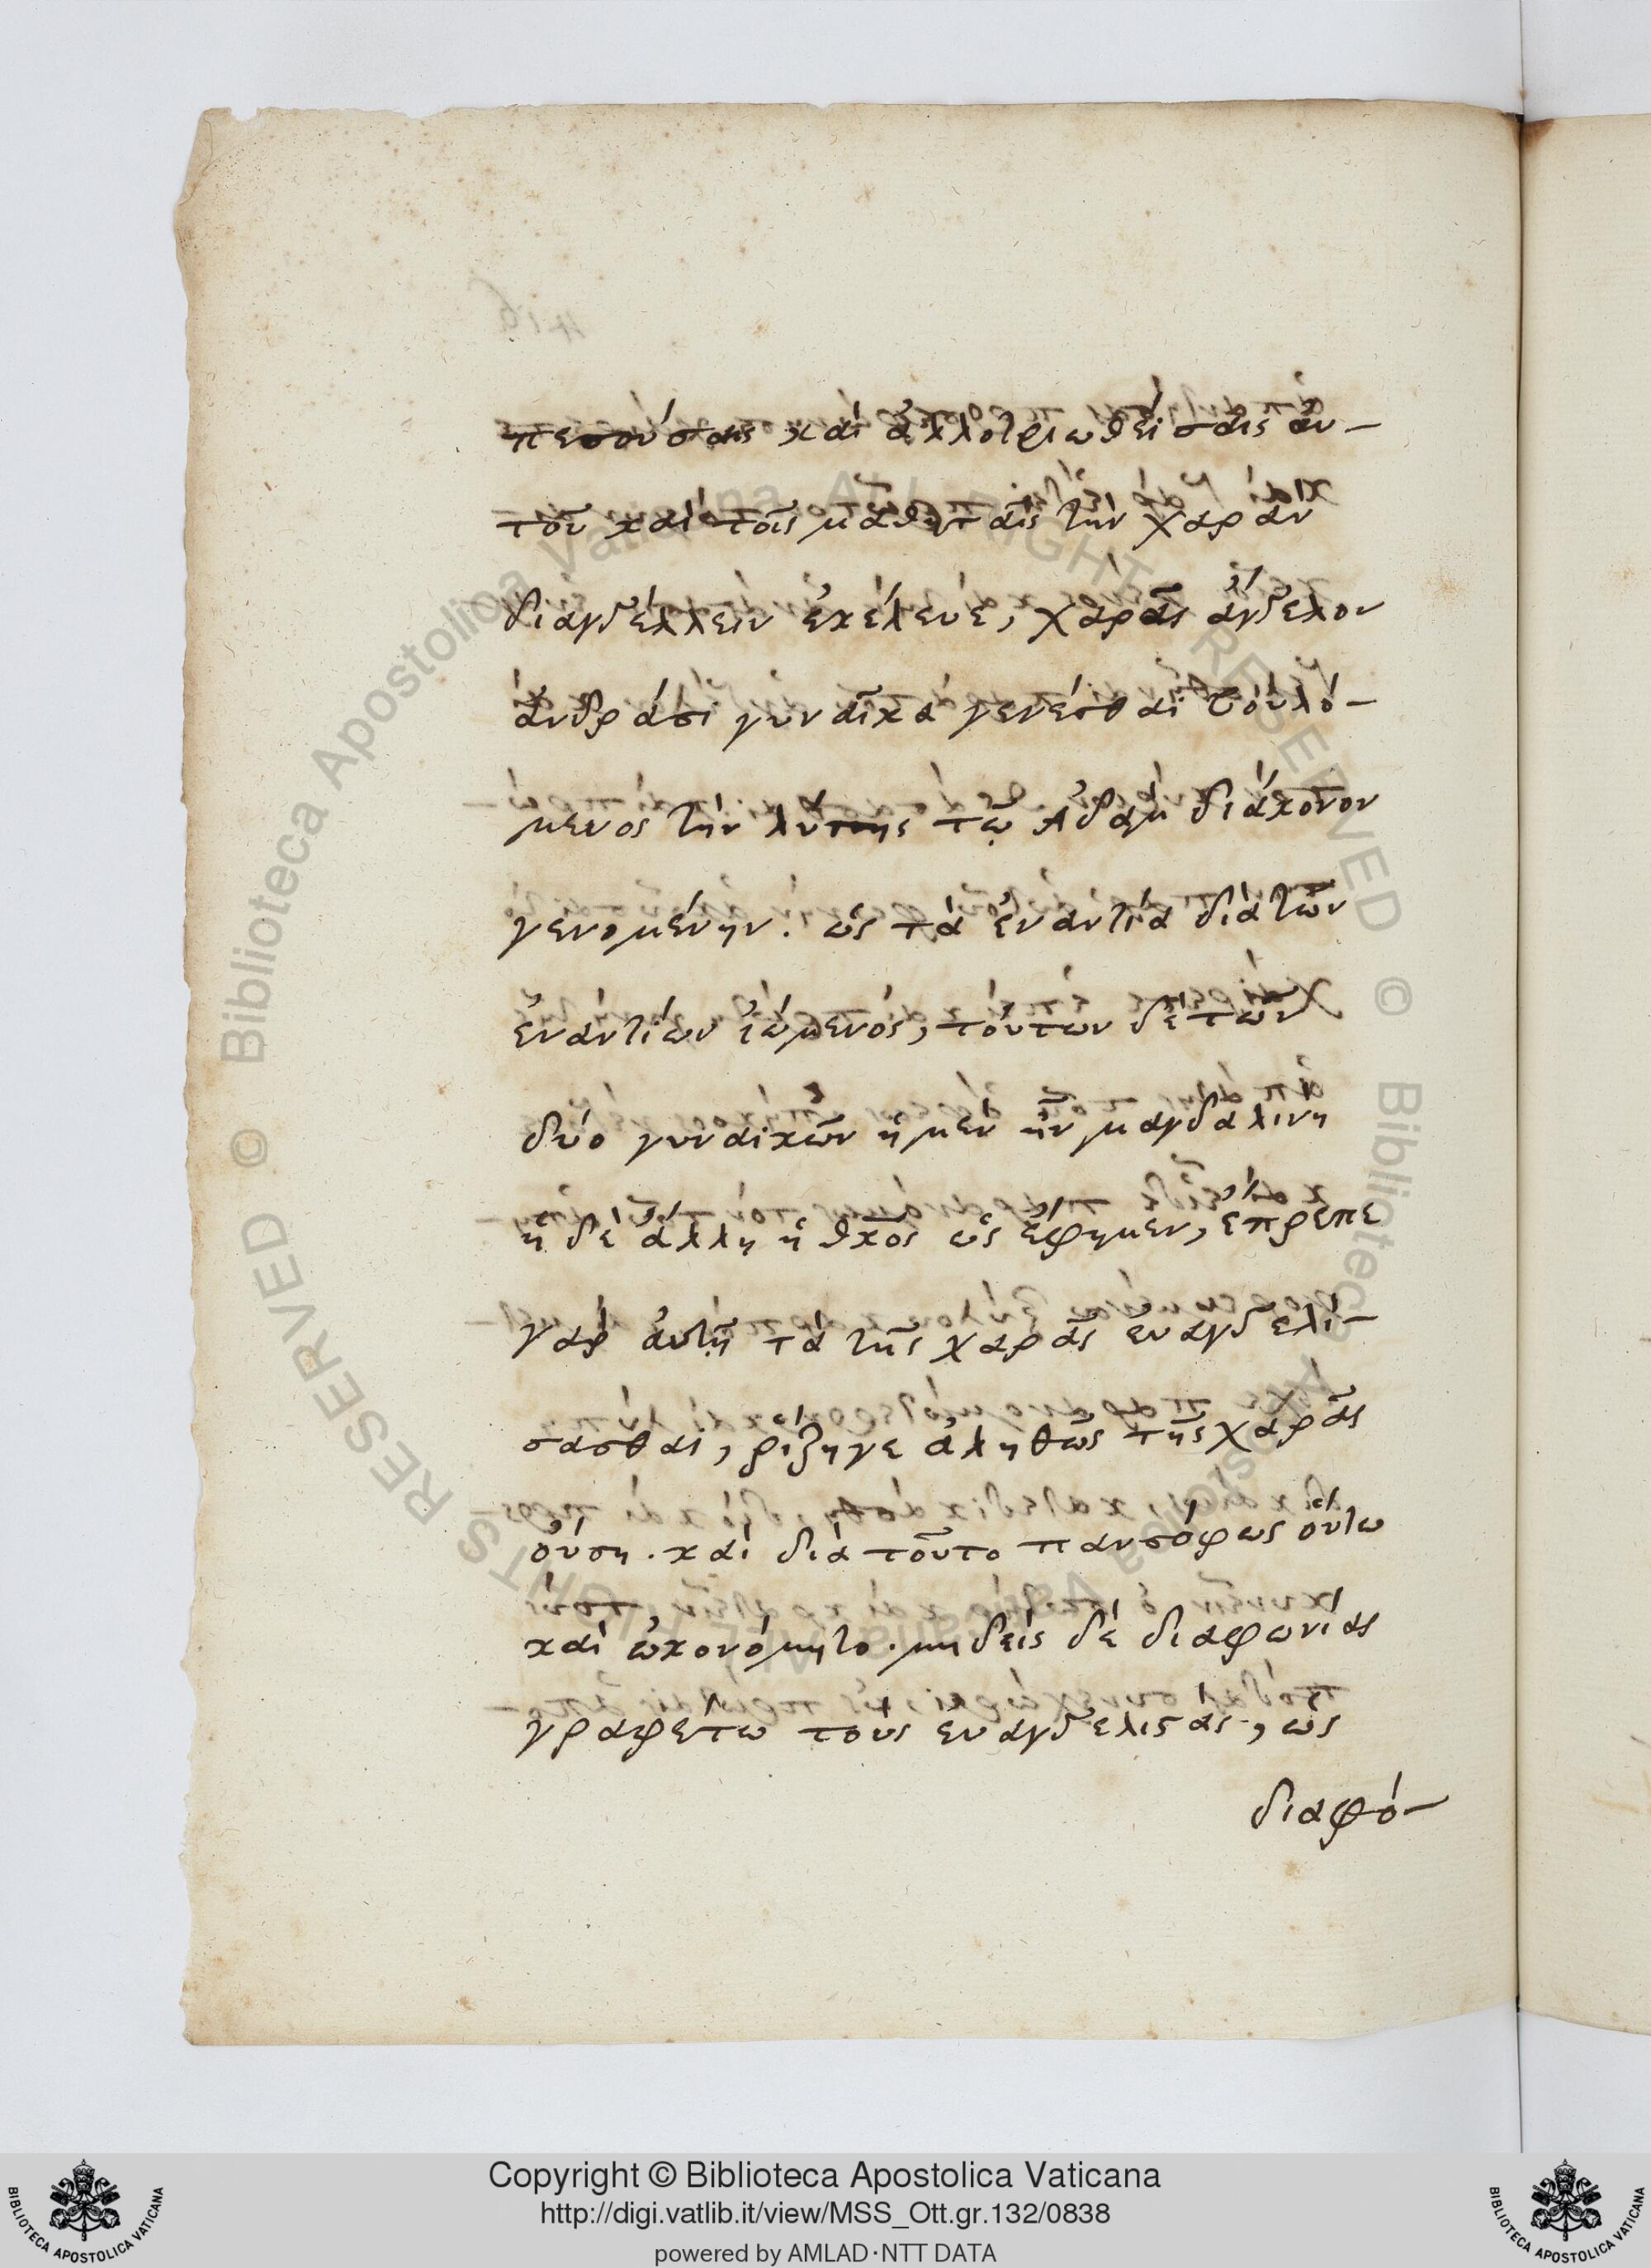 πεσούσαις καὶ ἀλλοτριωθείσαις αὐ-
τοῦ καὶ τοῖς μαθηταῖς τὴν χαρὰν
διαγγέλλειν ἐκέλευε, χαρᾶς ἄγγελον
ἀνδράσι γυναῖκα γενέσθαι βουλό-
μενος τὴν λύπης τῷ Ἀδὰμ διάκονον
γενομένην. ὡς τὰ ἐναντία διὰ τῶν
ἐναντίων ἰώμενος, τούτων δὲ τῶν
δύο γυναικῶν ἡ μὲν ἦν μαγδαλινὴ
ἡ δὲ ἄλλη ἡ θκος ὡς ἔφημεν, ἔπρεπε
γὰρ αὐτῇ τὰ τῆς χαρᾶς εὐαγγελί-
σασθαι, ῥίζῃ γε ἀληθῶς τῆς χαρᾶς
οὔσῃ. καὶ διὰ τοῦτο πανσόφως οὕτω
καὶ ὠκονόμητο. μηδεὶς δὲ διαφωνίας
γραφέτω τοὺς εὐαγγελιστάς, ὡς
διαφό-
Copyright © Biblioteca Apostolica Vaticana
http://digi.vatlib.it/view/MSS_Ott.gr.132/0838
powered by AMLAD·NTT DATA